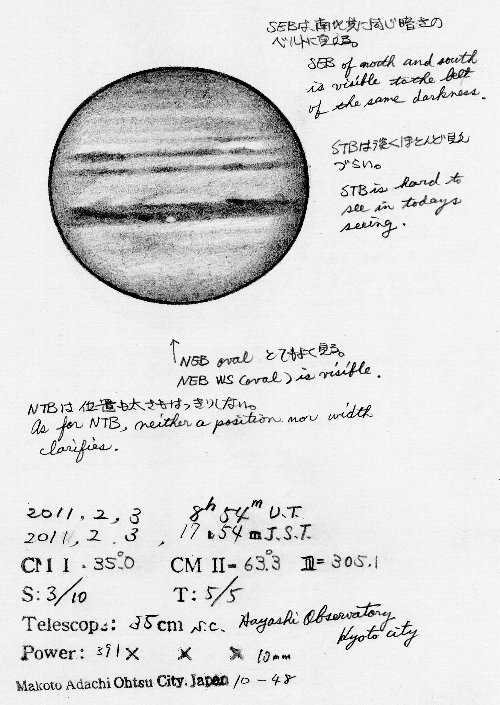 SEBは南北共に同じ暗さの
ベルトに見える。
SEB of north and south
is visible to the belt
of the same darkness.
STBは淡くほとんど見え
づらい。
STB is hard to
see in todays
seeing.
↑NEB oval とてもよく見る。
NEB WS (oval) is visible.
NTBは位置も太さもはっきりしない。
As for NTB, neither a position nor width
clarifies.
2011. 2, 3 8h 54m U.T.
2011, 2. 3, 17h 54m J.S.T.
CM I - 35.0° CM II= 63.3° III= 305.1
S: 3/10 T: 5/5
Telescope: 35cm s.c. Hayashi Observatory
Kyoto city
Power: 391× × × 10mm
Makoto Adachi Ohtsu City. Japan 10-48